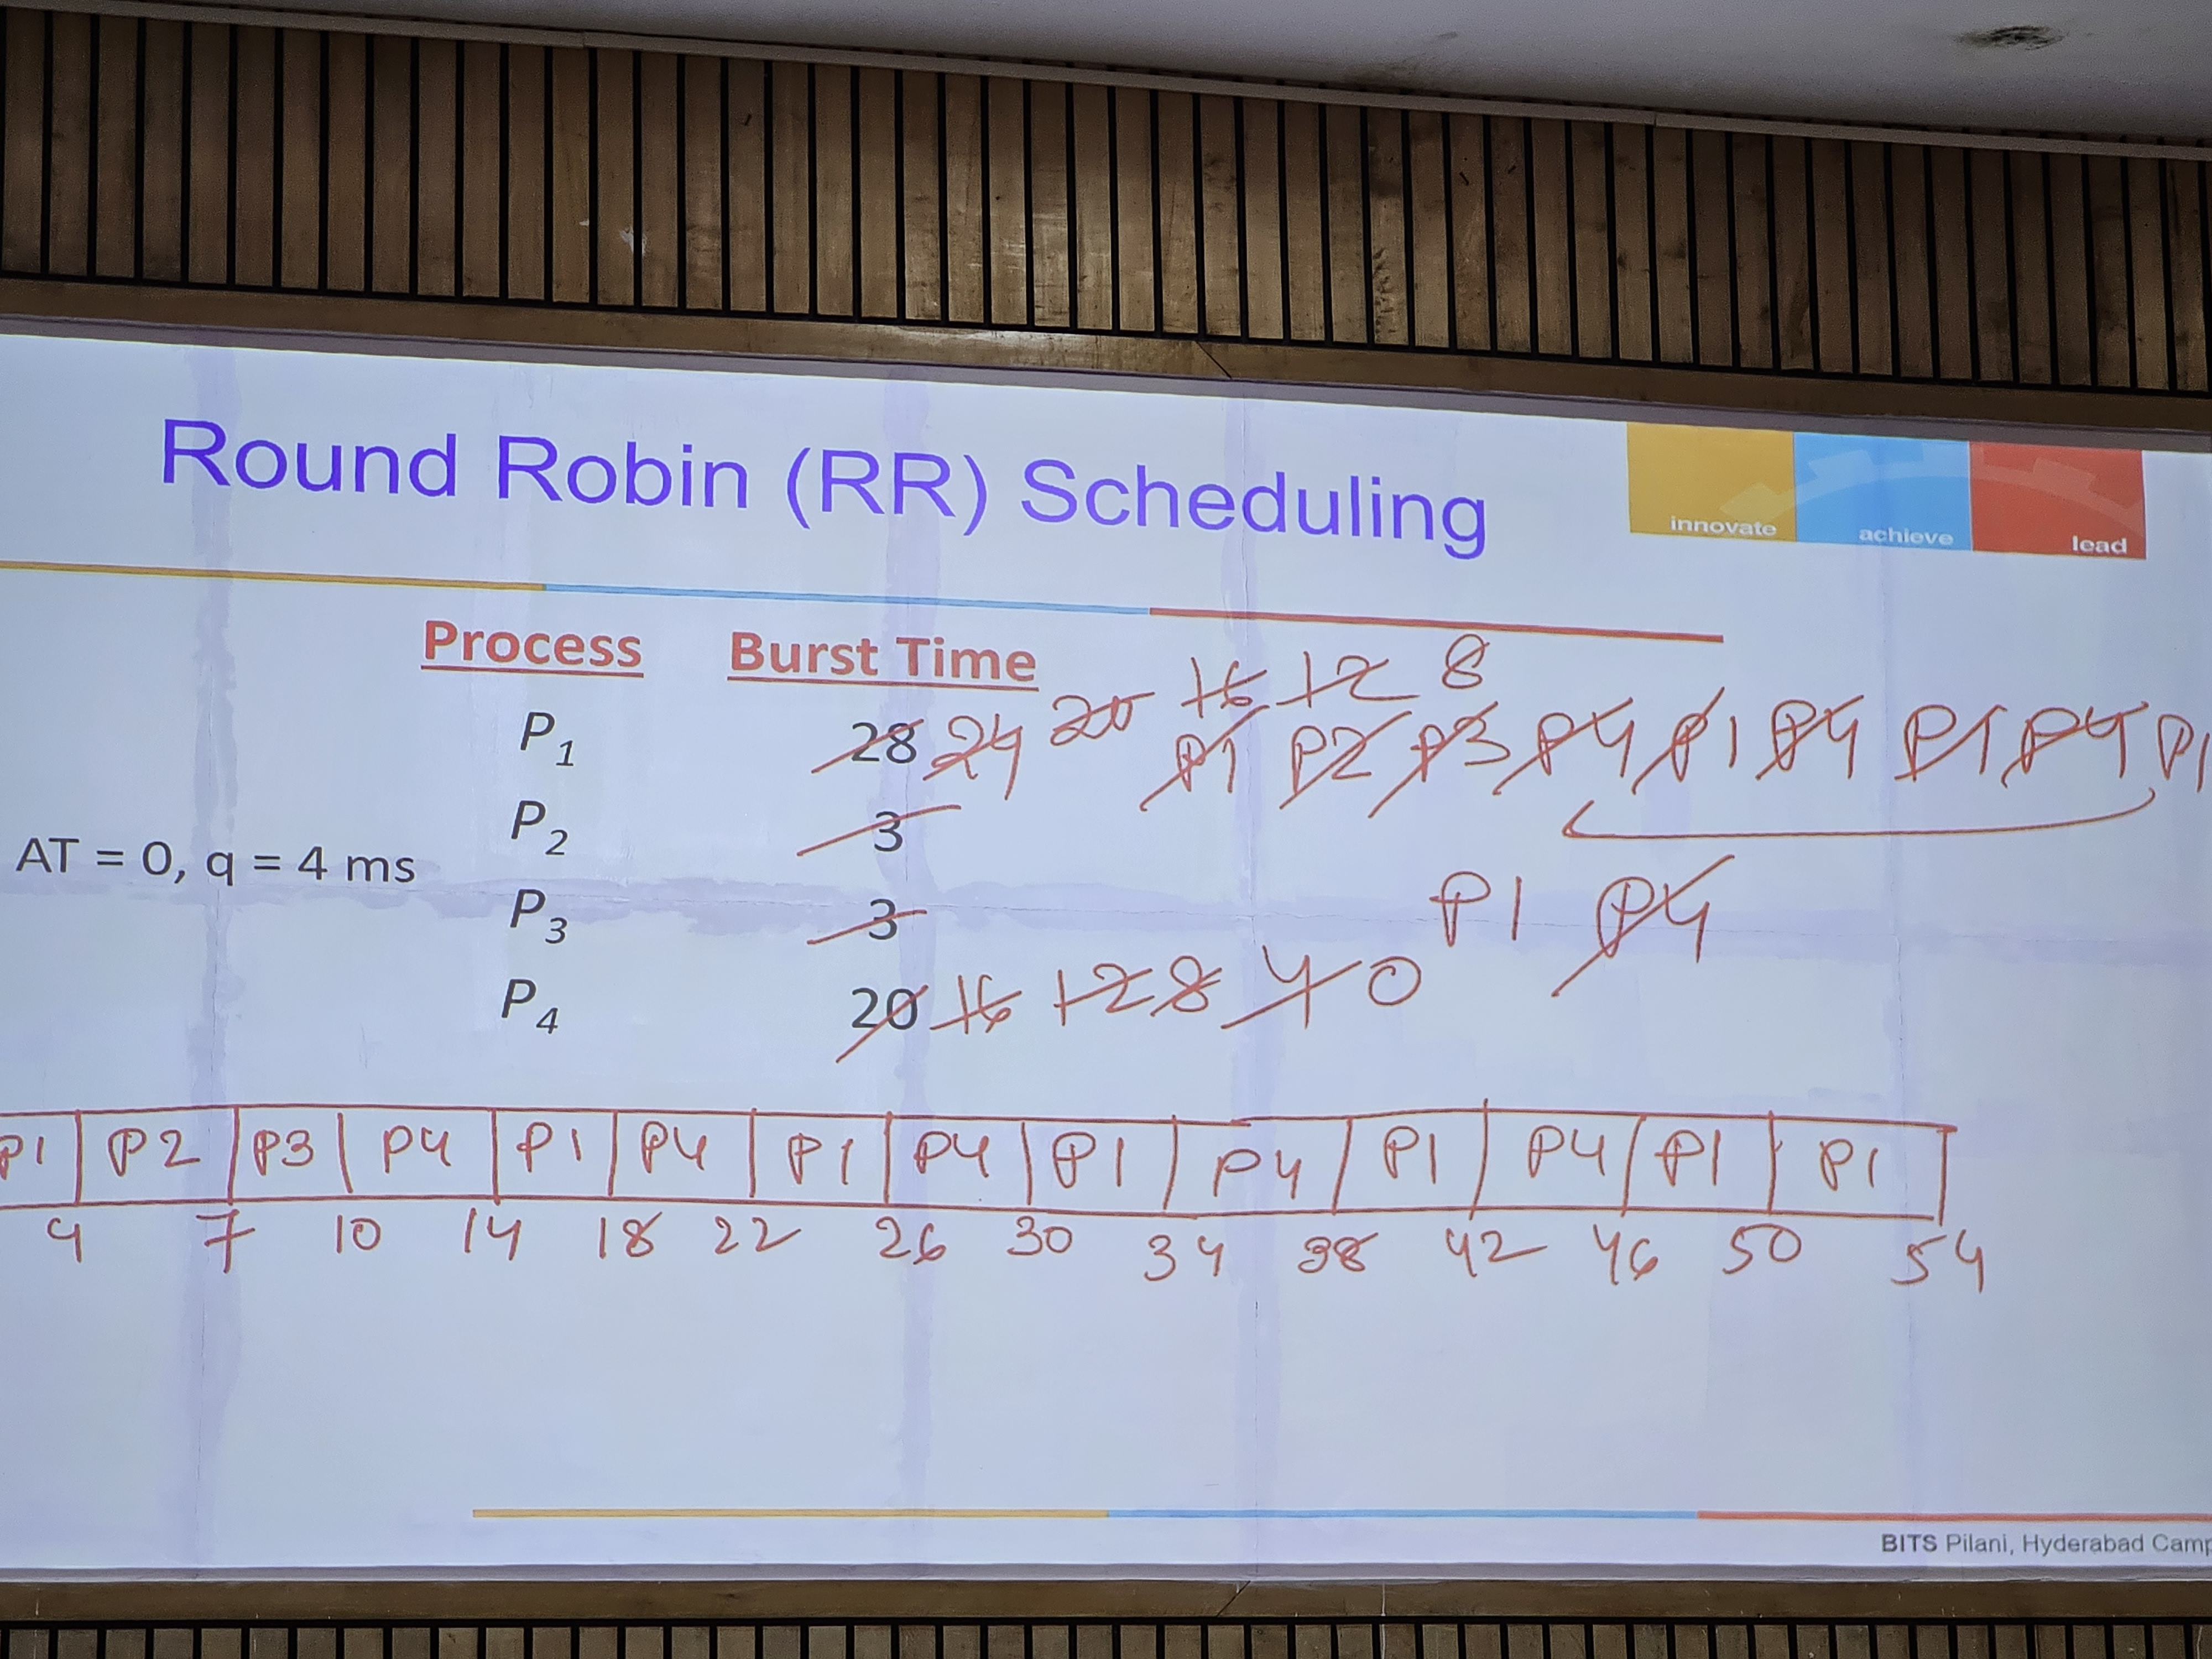 Round Robin (RR) Scheduling
innovate achieve lead
Process Burst Time
16 12 8
P1 28 24 20 P1 P2 P3 P4 P1 P4 P1 P4 P1
P2 3
AT = 0, q = 4 ms
P3 3 P1 P4
P4 20 16 12 8 4 0
P1 P2 P3 P4 P1 P4 P1 P4 P1 P4 P1 P4 P1 P1
4 7 10 14 18 22 26 30 34 38 42 46 50 54
BITS Pilani, Hyderabad Camp